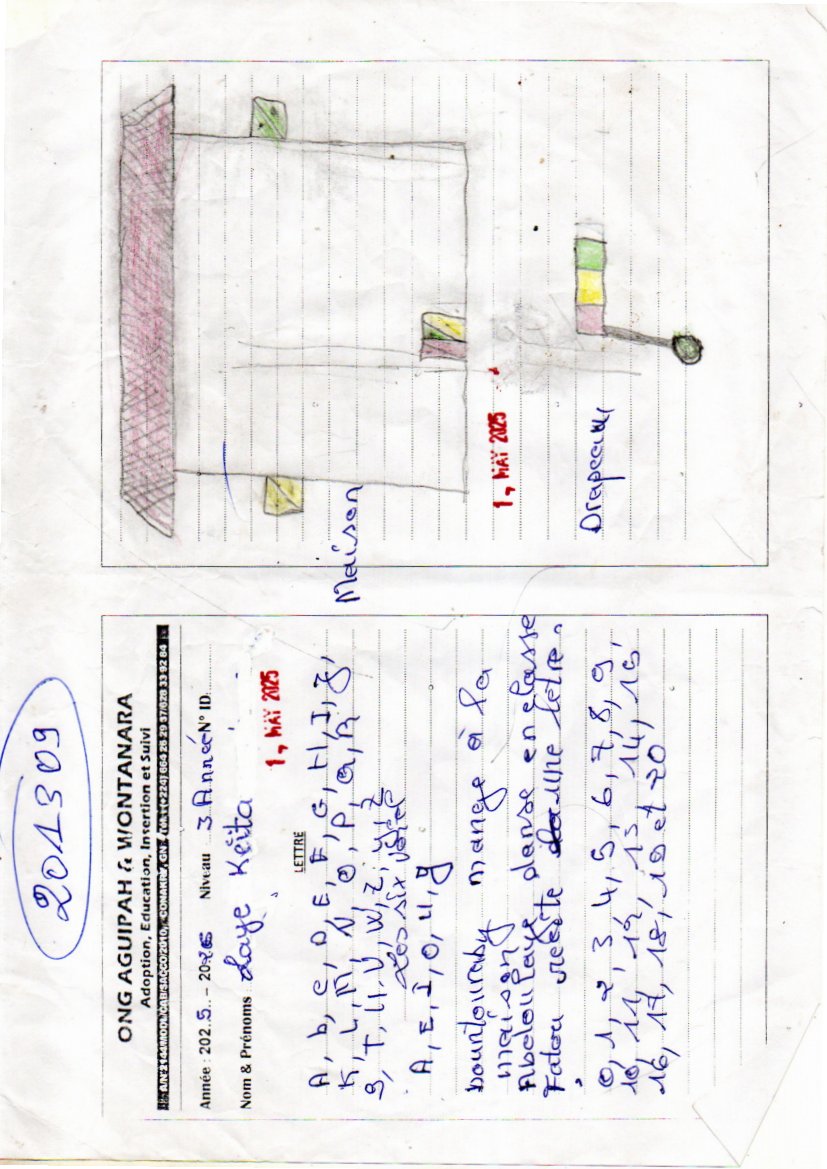 201309
ONG AGUIPAH & WONTANARA
Adoption, Education, Insertion et Suivi
Année : 2025 - 2026 Niveau 3 Année N° ID.
Nom & Prénoms Laye Keita
1, MAI 2025
LETTRE
A, b, c, D, E, F, G, H, I, J,
K, L, M, N, O, P, Q, R,
S, T, U, V, W, X, Y, Z
Les six
A, E, I, O, U, y
bountouraby mange à la
maison
Abdoulaye danse en classe
Fatou récite une lettre.
0, 1, 2, 3, 4, 5, 6, 7, 8, 9,
10, 11, 12, 13, 14, 15,
16, 17, 18, 19 et 20
Maison
1, MAI 2025
Drapeau